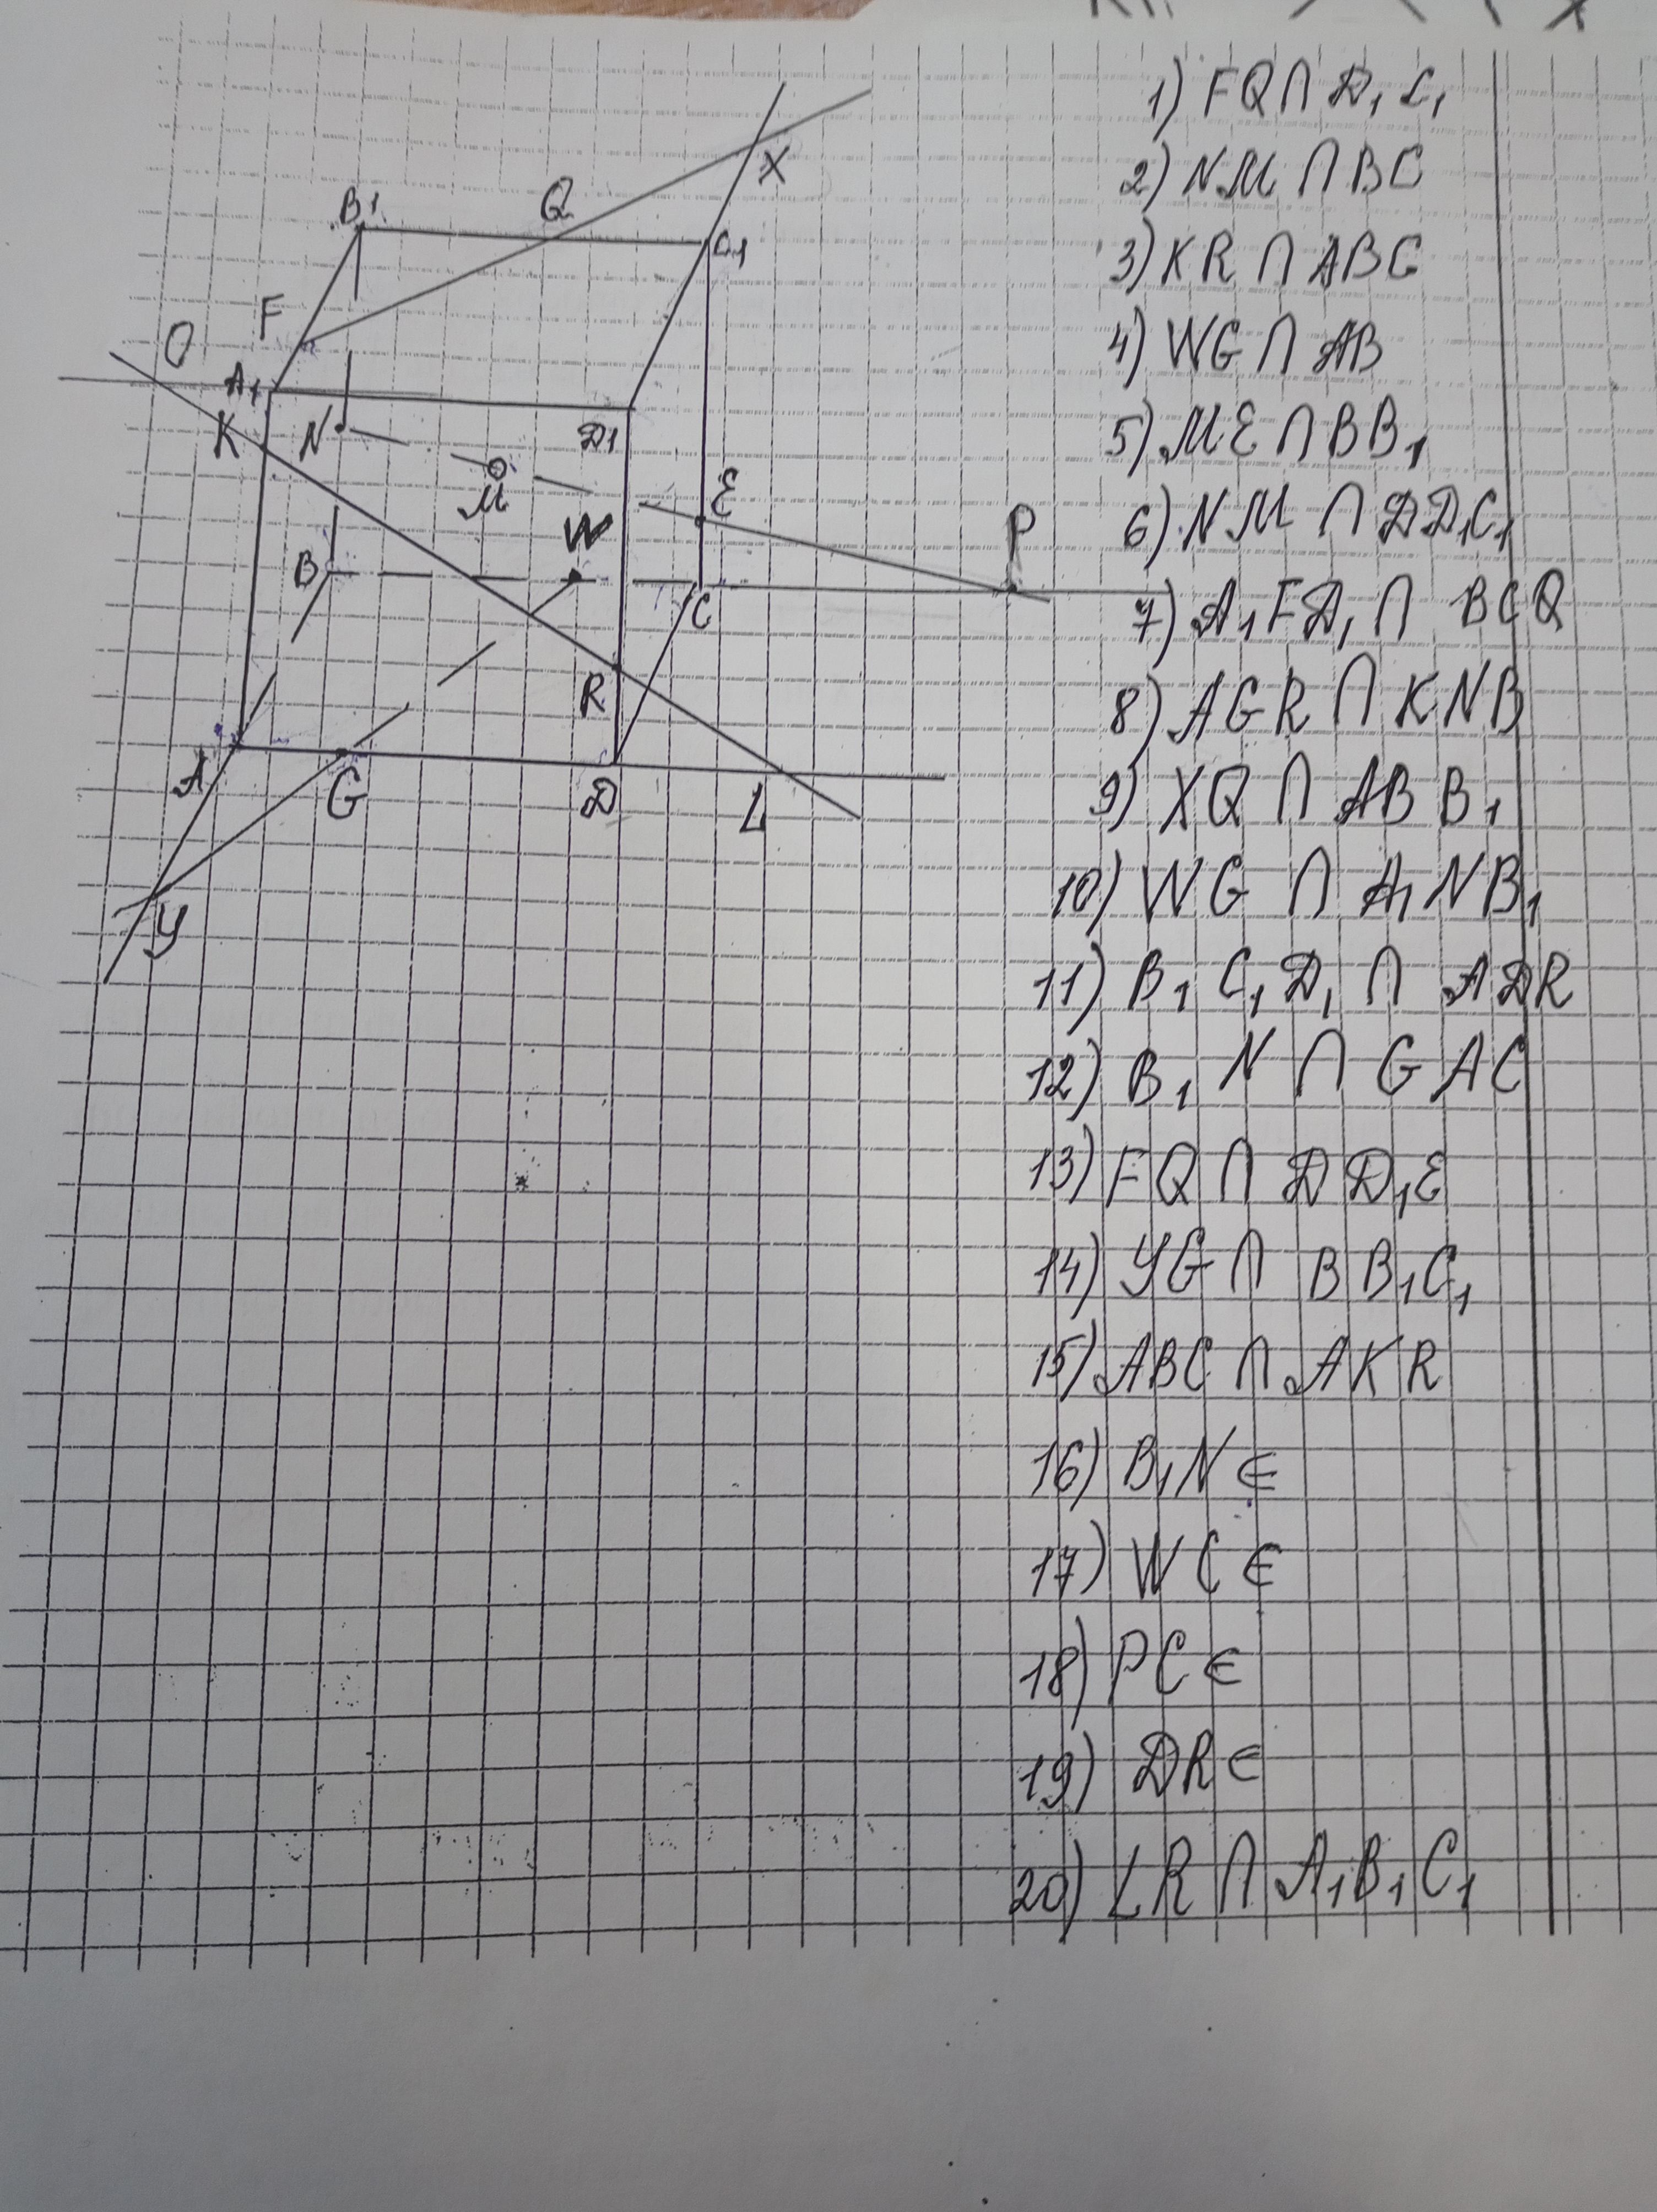 X
B1
Q
C1
F
O
A1
K
N
D1
M
E
W
P
B
C
R
A
G
D
L
У
1) FQ ∩ D₁C₁
2) NM ∩ BC
3) KR ∩ ABC
4) WG ∩ AB
5) ME ∩ BB₁
6) NM ∩ DD₁C₁
7) A₁FD₁ ∩ BCQ
8) AGR ∩ KNB
9) XQ ∩ ABB₁
10) WG ∩ A₁NB₁
11) B₁C₁D₁ ∩ ADR
12) B₁N ∩ GAC
13) FQ ∩ DD₁E
14) УG ∩ BB₁C₁
15) ABC ∩ AKR
16) B₁N ∈
17) WC ∈
18) PC ∈
19) DR ∈
20) LR ∩ A₁B₁C₁